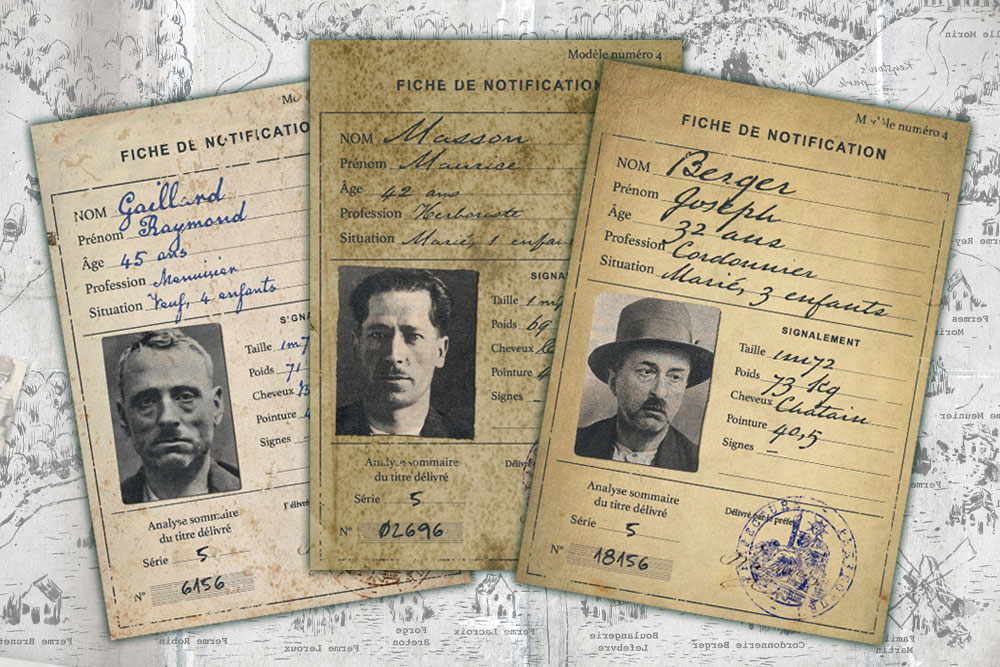 Mo
FICHE DE NOTIFICATIO
NOM Gaillard
Prénom Raymond
Âge 45 ans
Profession Menuisier
Situation Veuf, 4 enfants
SIGNA
Taille 1m7
Poids 71
Cheveux
Pointure 4
Signes
Analyse sommaire
du titre délivré
Série 5
N° 6156
Modèle numéro 4
FICHE DE NOTIFICATION
NOM Masson
Prénom Maurice
Âge 42 ans
Profession Herboriste
Situation Marié, 1 enfan
SIGNA
Taille 1m
Poids 69
Cheveux
Pointure 4
Signes _
Analyse sommaire
du titre délivré
Délivré
Série 5
N° 02696
Modèle numéro 4
FICHE DE NOTIFICATION
NOM Berger
Prénom Joseph
Âge 32 ans
Profession Cordonnier
Situation Marié, 3 enfants
SIGNALEMENT
Taille 1m72
Poids 73 kg
Cheveux Châtain
Pointure 40,5
Signes _
Analyse sommaire
du titre délivré
Délivré par le préfet
Série 5
N° 18156
lle Morin
Fermes
Morin
me Meunier
Ferme Brunet
Ferme Robin
Ferme Leroux
Forge
Breton
Ferme Lacroix
Boulangerie
Lefebvre
Cordonnerie Berger
Famil
Martin